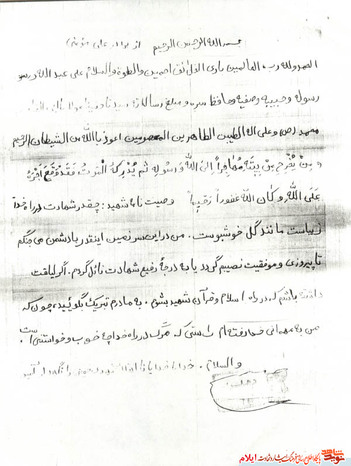 بسم الله الرحمن الرحیم از برادر علی مؤمنی
الحمدلله رب العالمین باری الخلائق اجمعین والصلوة والسلام علی عبدالله و رسو
رسوله وحبیبه وصفیه وحافظ سره و مبلغ رسالاته سیدنا و نبینا
محمد (ص) وعلی اله الطیبین الطاهرین المعصومین اعوذ باالله من الشیطان الرجیم
و من یخرج من بیته مهاجراً الی الله ورسوله ثم یدرکه الموت فقد وقع اجره
علی الله و کان الله غفوراً رحیماً وصیت نامه شهید: چقدر شهادت در راه خدا
زیباست مانند گل خوشبوست. من در این سرزمین اینقدر با دشمن می جنگم
تا پیروزی و موفقیت نصیبم گردد یا به درجهٔ رفیع شهادت نائل گردم. اگر لیاقت
داشته باشم که در راه اسلام و قرآن شهید بشوم. به مادرم تبریک بگوئید، چون که
من به مهمانی خدا رفته ام راستی که مرگ در راه خدا چه خوب و خواستنی است.
والسلام. خدایا خدایا تا انقلاب مهدی خمینی را نگهدار
ایلام